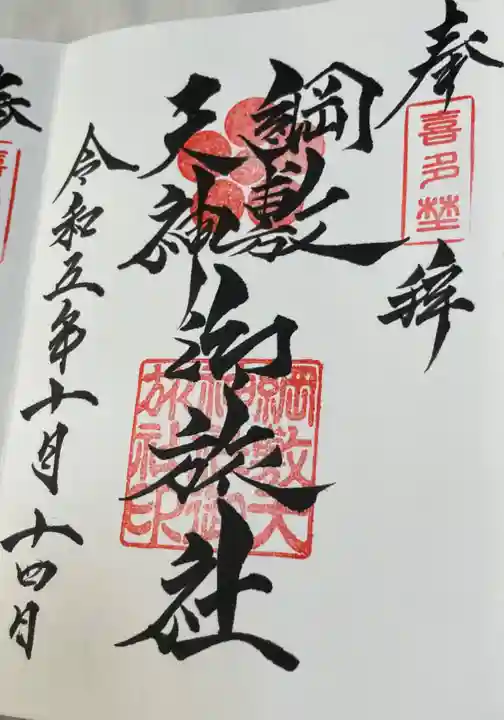 奉拝
喜多埜
綱敷
天神
御旅社
綱敷天
神社御
旅社印
令和五年十月十四日